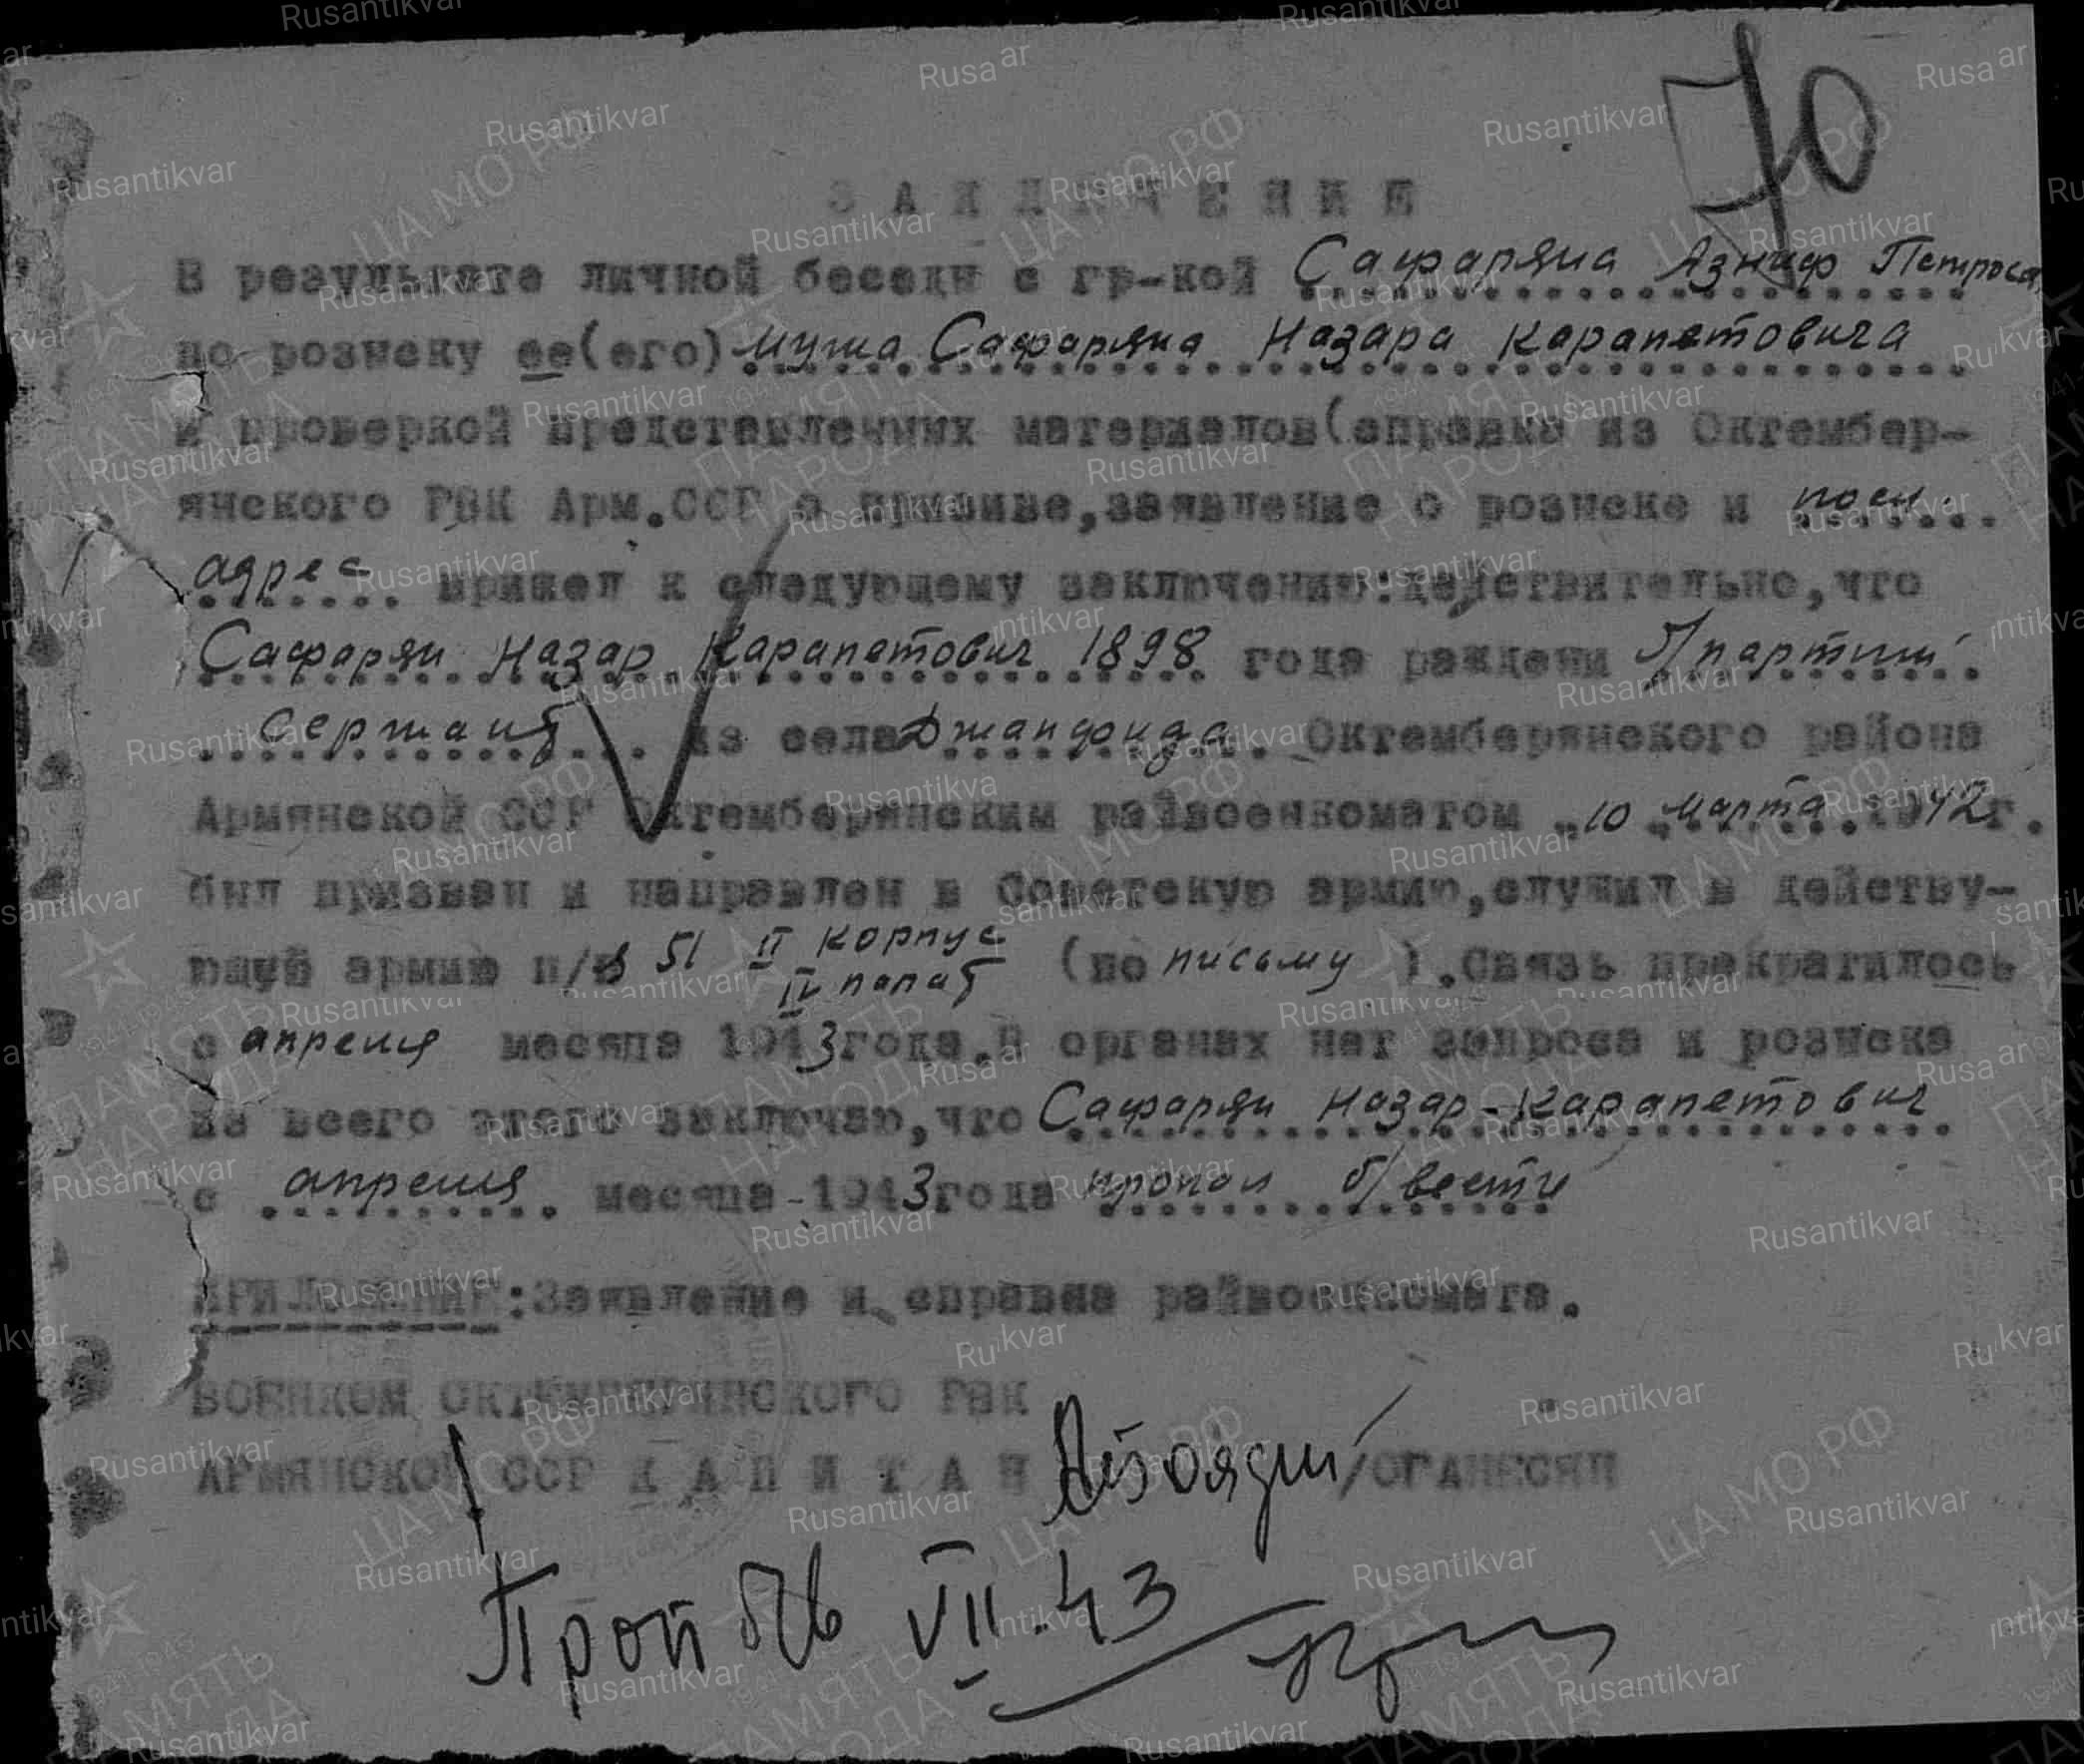 70
ЗАКЛЮЧЕНИЕ
В результате личной беседы с гр-кой Сафаряна Азниф Петроса
по розыску ее(его) мужа Сафаряна Назара Карапетовича
и проверкой представленных материалов(справка из Октембер-
янского РВК Арм.ССР о призыве,заявление о розыске и посл.
адрес пришел к следующему заключению:действительно,что
Сафарян Назар Карапетович 1898 года раждени б/партии
сержант из села Джанфида Октемберянского района
Армянской ССР Октемберянским райвоенкоматом "10" марта 1942г.
был призван и направлен в Советскую армию,служил в действу-
ющую армию п/я 51 II корпус
IV
(по письму).Связь прекратилось
с апреля месяца 1943года.В органах нет запроса и розыска
из всего этого заключаю,что Сафарян Назар Карапетович
с апреля месяца 1943года пропал б/вести
ПРИЛОЖЕНИЕ:Заявление и справка райвоенкомата.
ВОЕНКОМ ОКТЕМБЕРЯНСКОГО РВК
АРМЯНСКОЙ ССР КАПИТАН /ОГАНЕСЯН
Проп б/в VII.43
ЦА МО РФ
ПАМЯТЬ НАРОДА
1941-1945
Rusantikvar